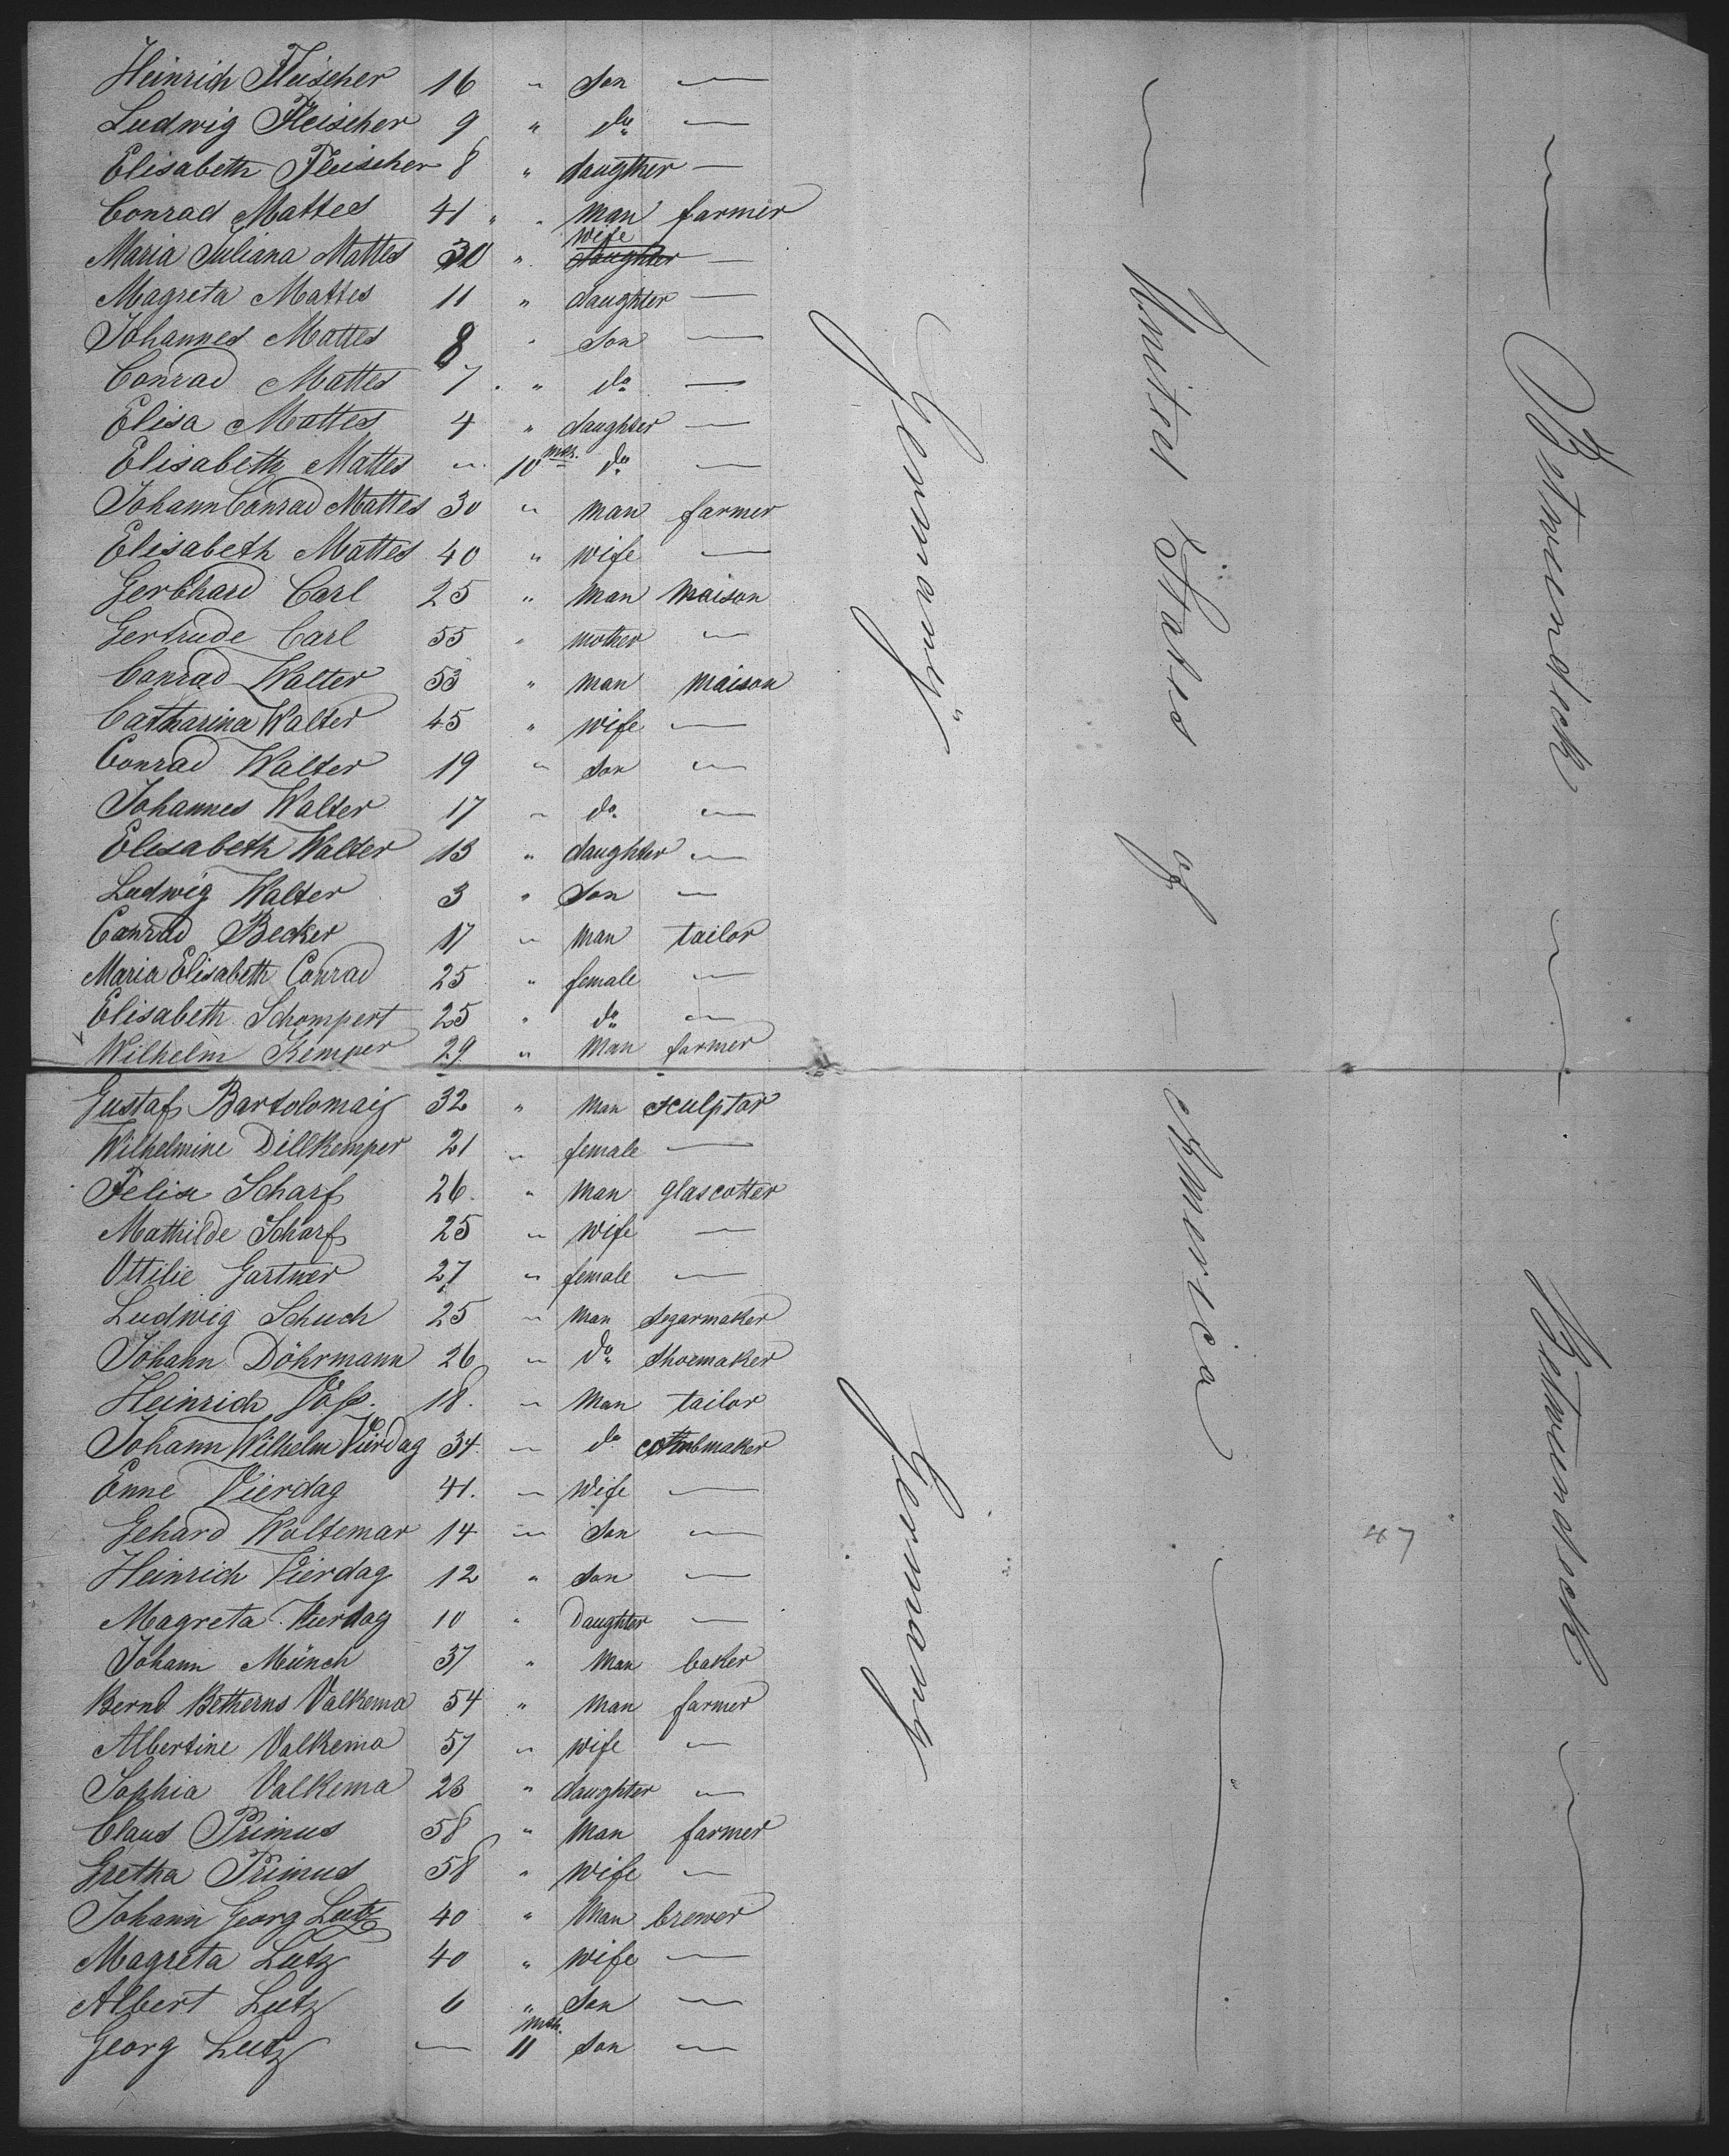 Heinrich Fleischer 16 " son —
Ludwig Fleischer 9 " do —
Elisabeth Fleischer 8 " daugther —
Conrad Mattes 41 " " man farmer
Maria Juliana Mattes 30 " wife daughter —
Magreta Mattes 11 " daughter —
Johannes Mattes 8 " son —
Conrad Mattes 7 " do —
Elisa Mattes 4 " daughter —
Elisabeth Mattes — 10 mts. do —
Johann Conrad Mattes 30 " man farmer
Elisabeth Mattes 40 " wife —
Gerbhard Carl 25 " man maison
Gertrude Carl 55 " mother —
Conrad Walter 53 " man maison
Catharina Walter 45 " wife —
Conrad Walter 19 " son —
Johannes Walter 17 " do —
Elisabeth Walter 13 " daughter —
Ludwig Walter 3 " son —
Conrad Becker 17 " man tailor
Maria Elisabeth Conrad 25 " female —
Elisabeth Schompert 25 " do —
Wilhelm Kemper 29 " man farmer
Gustaf Bartolomaij 32 " man sculptor
Wilhelmine Dillkemper 21 " female —
Felix Scharf 26 " man glascotter
Mathilde Scharf 25 " wife —
Ottilie Gartner 27 " female —
Ludwig Schuch 25 " man segarmaker
Johann Döhrmann 26 " do shoemaker
Heinrich Voss 18 " man tailor
Johann Wilhelm Vierdag 34 " do combmaker
Enne Vierdag 41 " wife —
Gehard Woltemar 14 " son —
Heinrich Vierdag 12 " son —
Magreta Vierdag 10 " Daughter —
Johann Münch 37 " man baker
Bernd Betherns Valkema 54 " man farmer
Albertine Valkema 57 " wife —
Sophia Valkema 23 " daughter —
Claus Primus 58 " man farmer
Gretha Primus 58 " wife —
Johann Georg Lutz 40 " man brewer
Magreta Lutz 40 " wife —
Albert Lutz 6 " son —
Georg Lutz — 11 mts. son —
Germany
Germany
United States of America
47
Betweendeck
Betweendeck